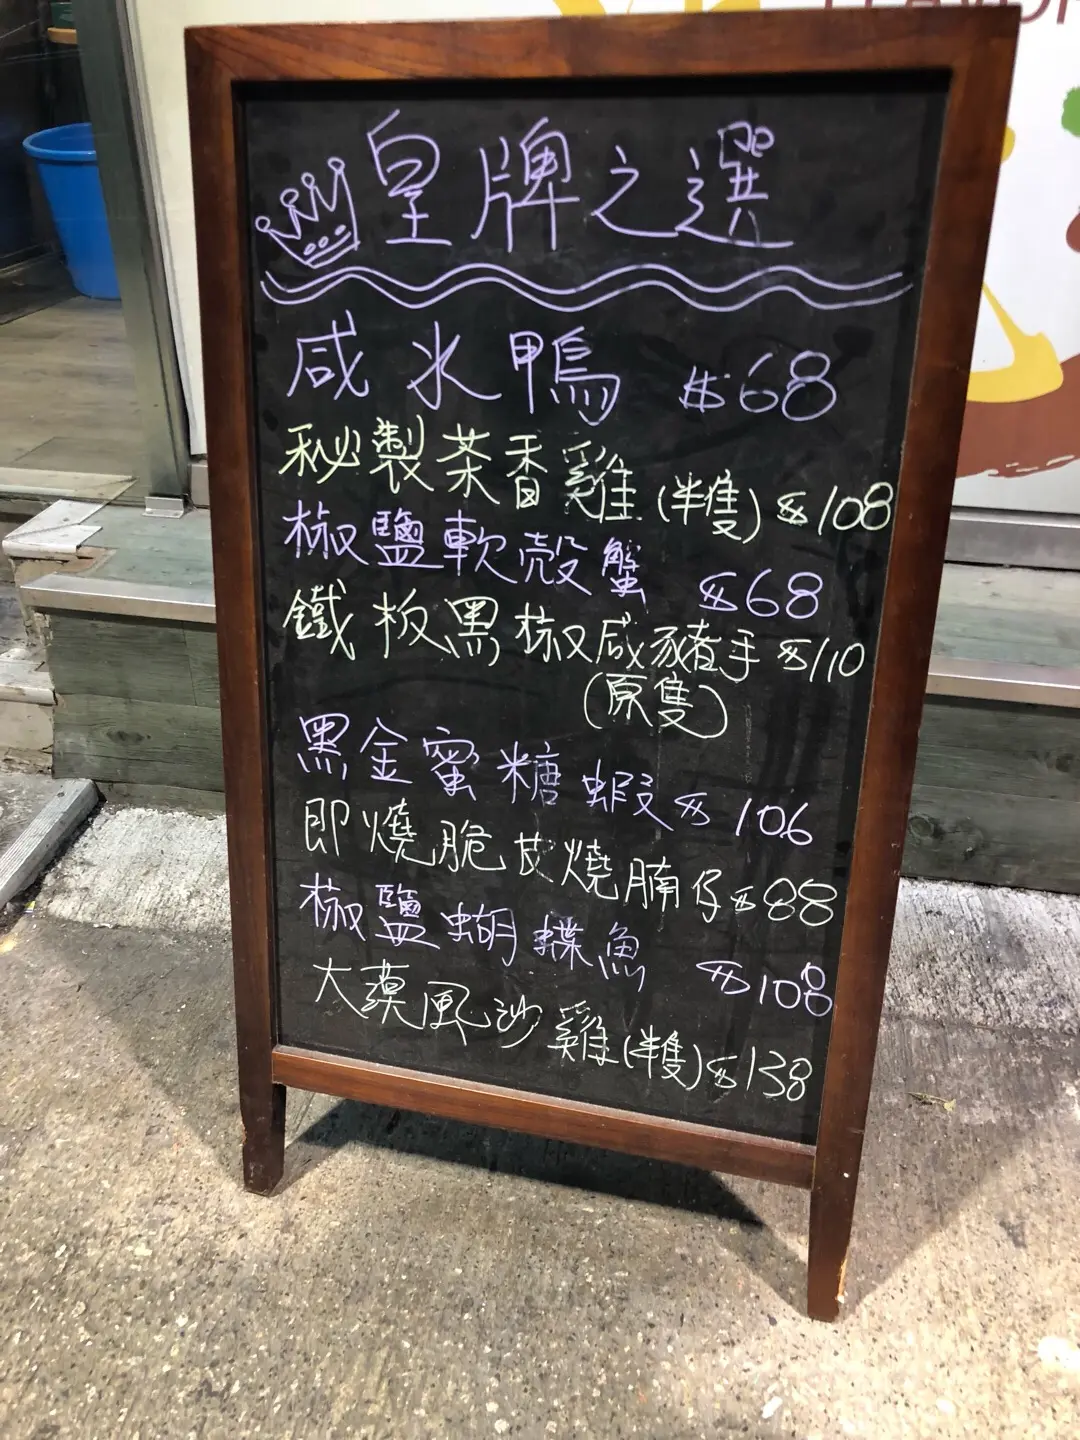 皇牌之選
咸水鴨 $68
秘製茶香雞(半隻) $108
椒鹽軟殼蟹 $68
鐵板黑椒咸豬手 $110
(原隻)
黑金蜜糖蝦 $106
即燒脆皮燒腩仔 $88
椒鹽蝴蝶魚 $108
大漠風沙雞(半隻) $138